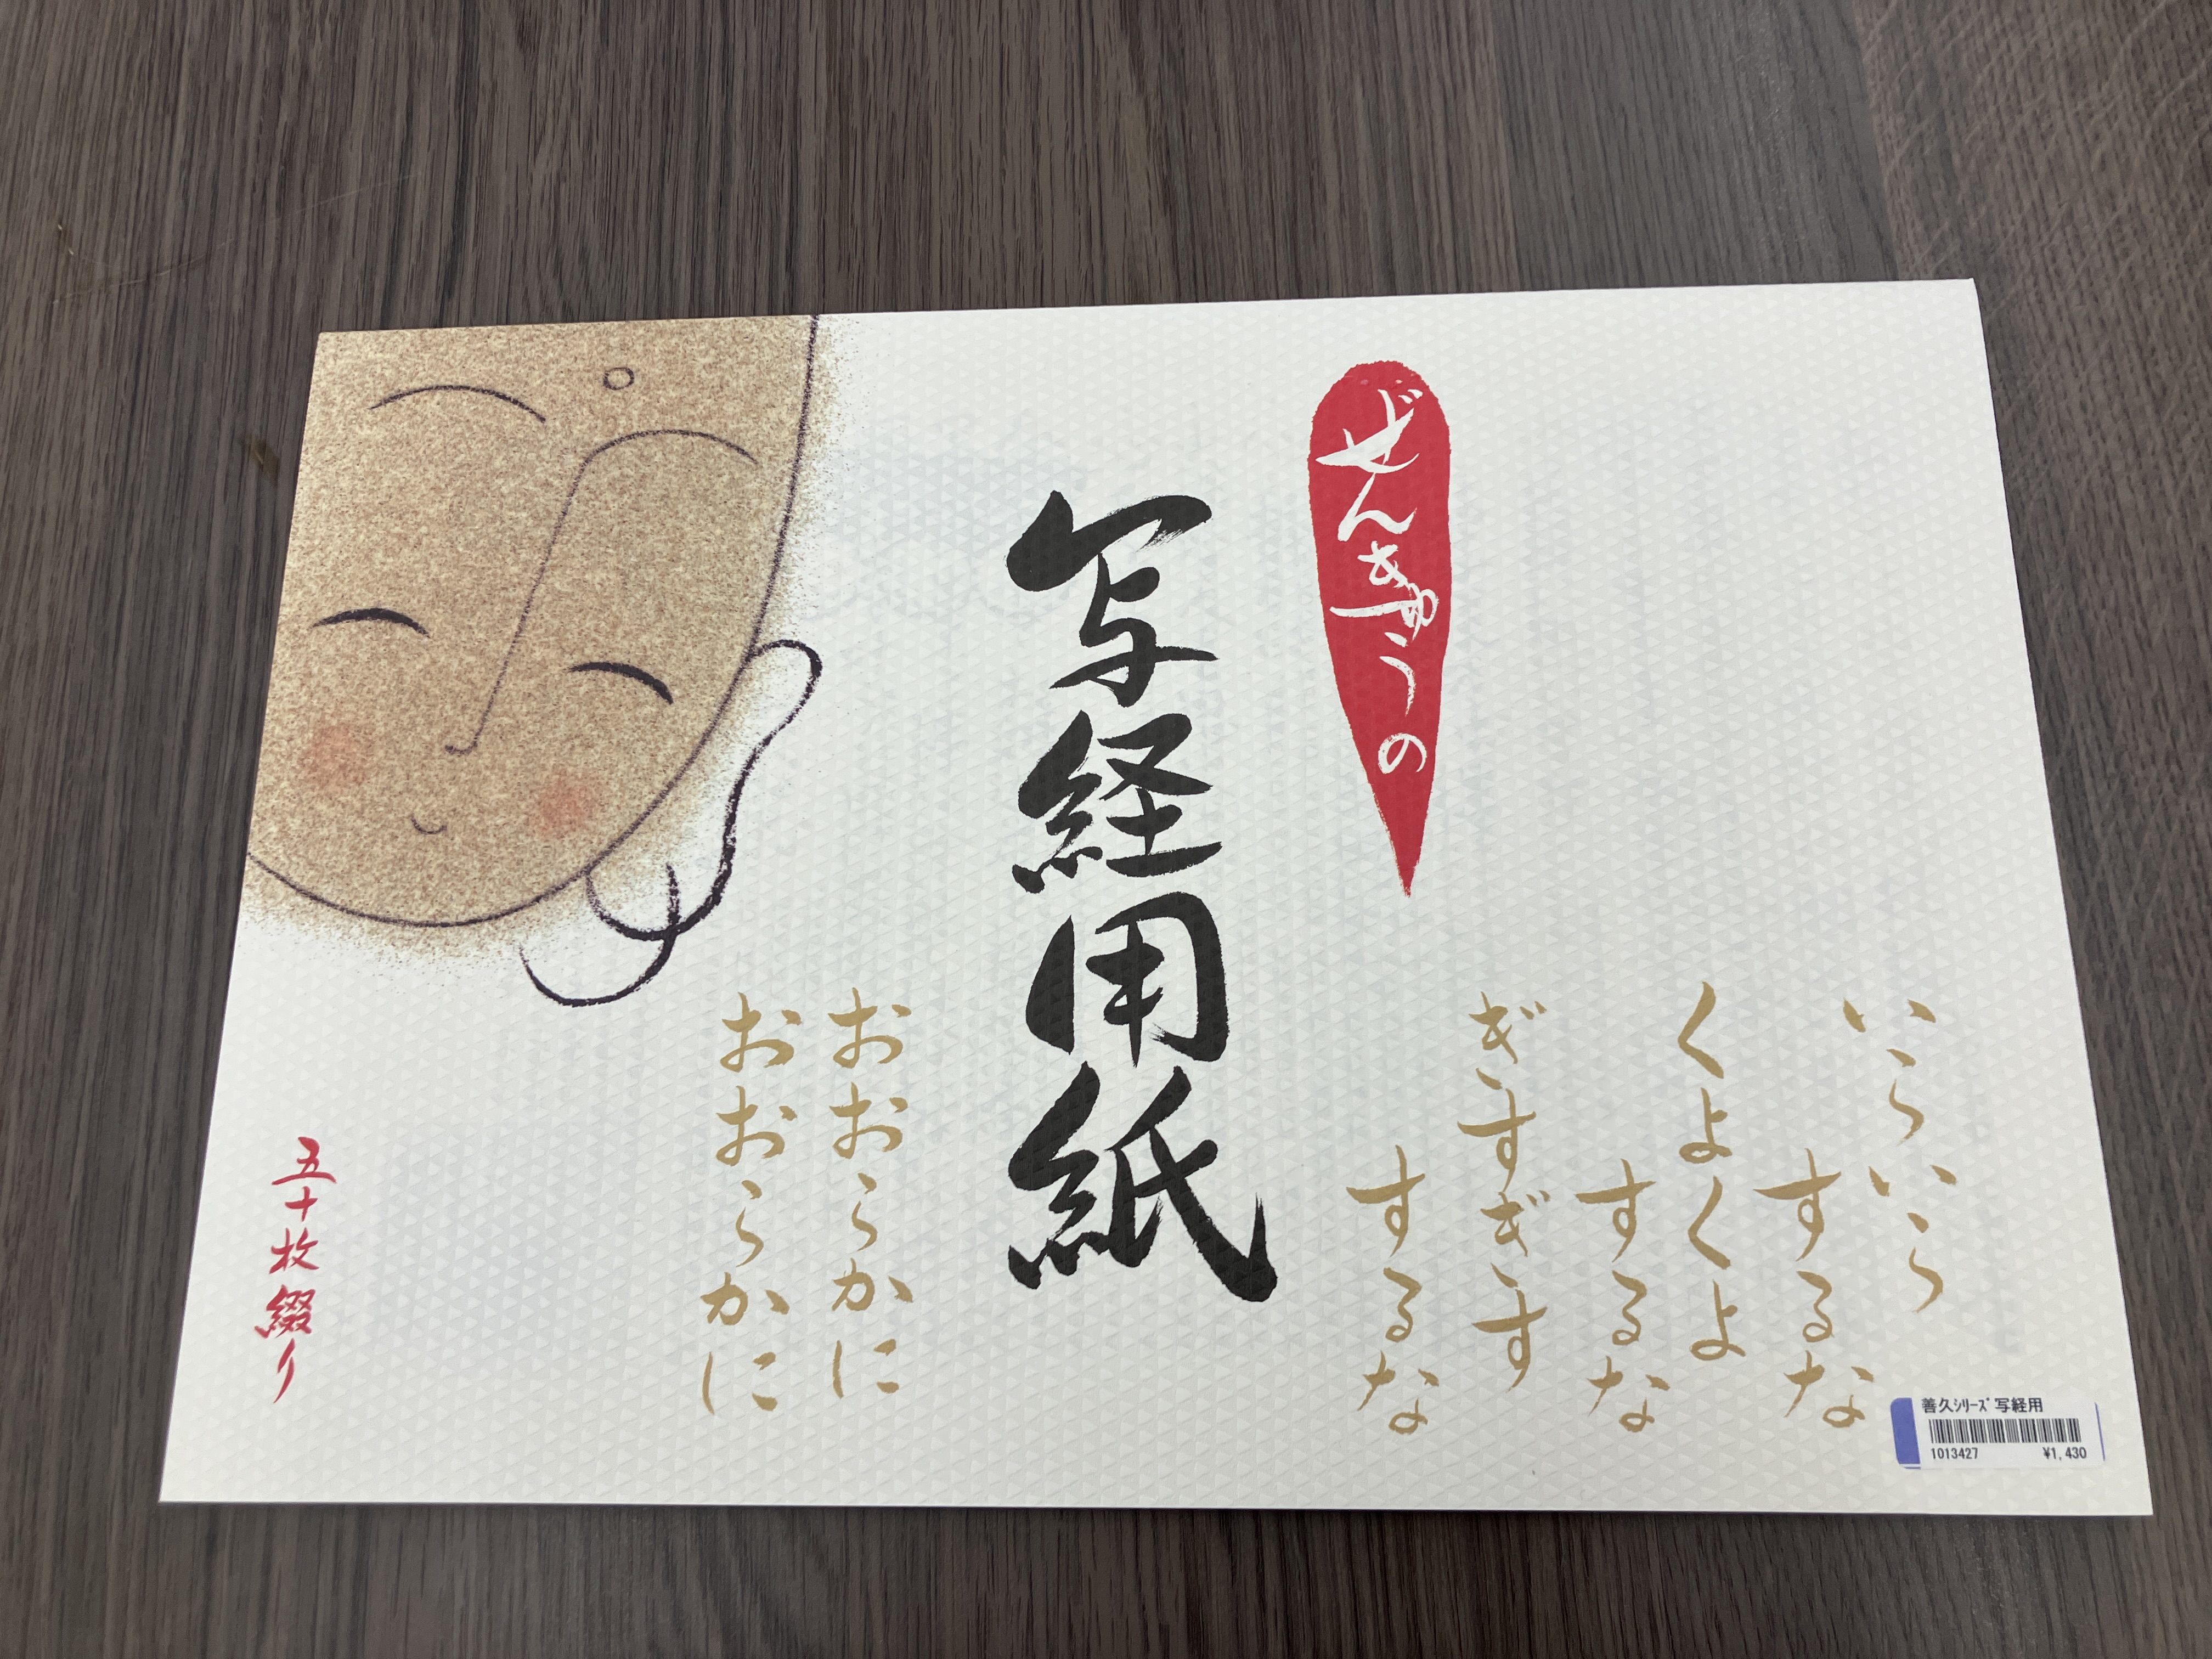 いらいら
するな
くよくよ
するな
ぎすぎす
するな
ぜんきゅうの
写経用紙
おおらかに
おおらかに
五十枚綴り
善久ｼﾘｰｽﾞ 写経用
1013427 ¥1,430